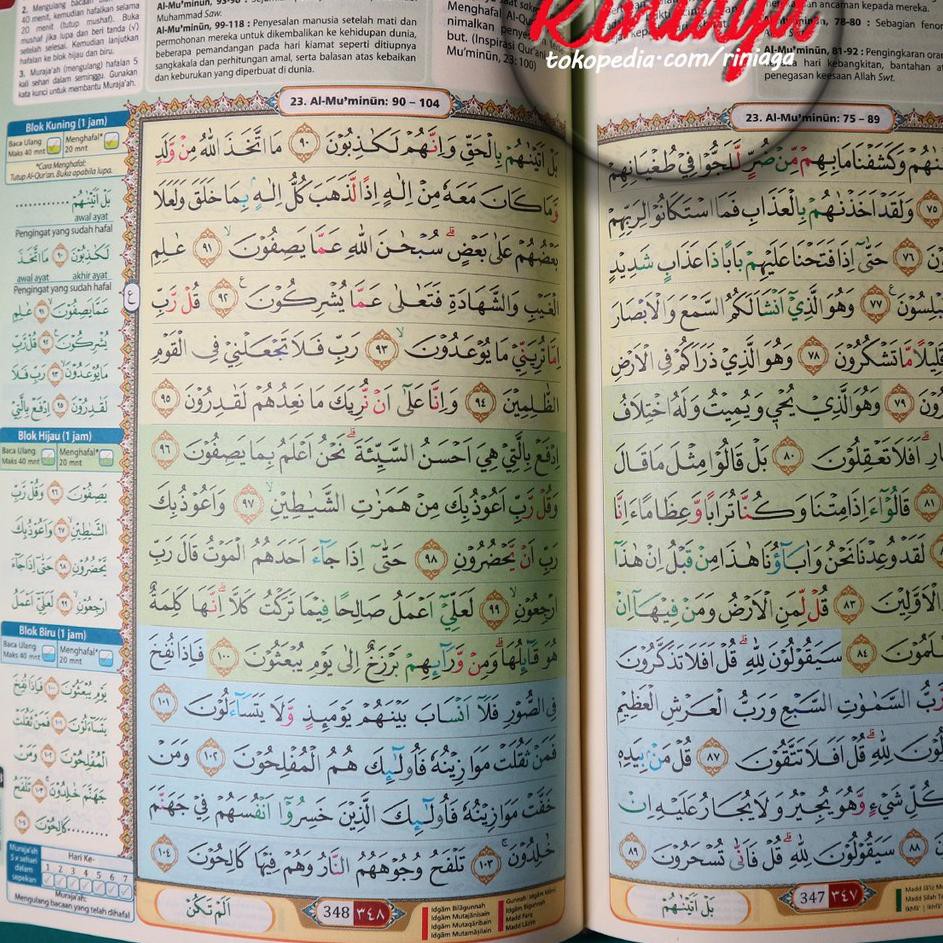 Rinjaya
tokopedia.com/rinjaga
ancaman kepada mereka.
Al-Mu'minūn, 78-80 : Sebagian feno
Al-Mu'minūn, 81-92 : Pengingkaran ora
hari kebangkitan, bantahan
penegasan keesaan Allah Swt.
23. Al-Mu'minūn: 75 – 89
وَكَشَفْنَا مَا بِهِمْ مِّنْ ضُرٍّ لَّلَجُّوْا فِيْ طُغْيَانِهِمْ
٧٥ وَلَقَدْ اَخَذْنٰهُمْ بِالْعَذَابِ فَمَا اسْتَكَانُوْا لِرَبِّهِمْ
٧٦ حَتّٰٓى اِذَا فَتَحْنَا عَلَيْهِمْ بَابًا ذَا عَذَابٍ شَدِيْدٍ
٧٧ وَهُوَ الَّذِيْٓ اَنْشَاَ لَكُمُ السَّمْعَ وَالْاَبْصَارَ
قَلِيْلًا مَّا تَشْكُرُوْنَ ٧٨ وَهُوَ الَّذِيْ ذَرَاَكُمْ فِى الْاَرْضِ
٧٩ وَهُوَ الَّذِيْ يُحْيٖ وَيُمِيْتُ وَلَهُ اخْتِلَافُ
اَفَلَا تَعْقِلُوْنَ ٨٠ بَلْ قَالُوْا مِثْلَ مَا قَالَ
٨١ قَالُوْٓا ءَاِذَا مِتْنَا وَكُنَّا تُرَابًا وَّعِظَامًا ءَاِنَّا
لَقَدْ وُعِدْنَا نَحْنُ وَاٰبَاۤؤُنَا هٰذَا مِنْ قَبْلُ اِنْ هٰذَآ
الْاَوَّلِيْنَ ٨٣ قُلْ لِّمَنِ الْاَرْضُ وَمَنْ فِيْهَآ اِنْ
٨٤ سَيَقُوْلُوْنَ لِلّٰهِ ۗ قُلْ اَفَلَا تَذَكَّرُوْنَ
رَّبُّ السَّمٰوٰتِ السَّبْعِ وَرَبُّ الْعَرْشِ الْعَظِيْمِ
لِلّٰهِ ۗ قُلْ اَفَلَا تَتَّقُوْنَ ٨٧ قُلْ مَنْۢ بِيَدِهٖ
كُلِّ شَيْءٍ وَّهُوَ يُجِيْرُ وَلَا يُجَارُ عَلَيْهِ اِنْ
٨٨ سَيَقُوْلُوْنَ لِلّٰهِ ۗ قُلْ فَاَنّٰى تُسْحَرُوْنَ ٨٩
بَلْ اَتَيْنٰهُمْ
347 ٣٤٧
2. Mengulang bacaan
menit, kemudian hafalkan selama
20 menit. Buka dan tutup
mushaf jika lupa dan beri tanda (√)
setelah selesai. Kemudian lanjutkan
ke blok hijau dan biru.
3. Muraja'ah (mengulang) hafalan 5
kali sehari dalam seminggu. Gunakan
kata kunci untuk membantu Muraja'ah.
Muhammad Saw.
Al-Mu'minūn, 99-118 : Penyesalan manusia setelah mati dan
permohonan mereka untuk dikembalikan ke kehidupan dunia,
beberapa pemandangan pada hari kiamat seperti ditiupnya
sangkakala dan perhitungan amal, serta balasan atas kebaikan
dan keburukan yang diperbuat di dunia.
Menghafal Al-Qur
nimalkan
but. (Inspirasi Qur'ani
Mu'minūn, 23: 100)
23. Al-Mu'minūn: 90 – 104
بَلْ اَتَيْنٰهُمْ بِالْحَقِّ وَاِنَّهُمْ لَكٰذِبُوْنَ ٩٠ مَا اتَّخَذَ اللّٰهُ مِنْ وَّلَدٍ
وَّمَا كَانَ مَعَهٗ مِنْ اِلٰهٍ اِذًا لَّذَهَبَ كُلُّ اِلٰهٍۢ بِمَا خَلَقَ وَلَعَلَا
بَعْضُهُمْ عَلٰى بَعْضٍ ۗ سُبْحٰنَ اللّٰهِ عَمَّا يَصِفُوْنَ ۙ ٩١ عٰلِمِ
الْغَيْبِ وَالشَّهَادَةِ فَتَعٰلٰى عَمَّا يُشْرِكُوْنَ ࣖ ٩٢ قُلْ رَّبِّ
اِمَّا تُرِيَنِّيْ مَا يُوْعَدُوْنَ ۙ ٩٣ رَبِّ فَلَا تَجْعَلْنِيْ فِى الْقَوْمِ
الظّٰلِمِيْنَ ٩٤ وَاِنَّا عَلٰٓى اَنْ نُّرِيَكَ مَا نَعِدُهُمْ لَقٰدِرُوْنَ ٩٥
اِدْفَعْ بِالَّتِيْ هِيَ اَحْسَنُ السَّيِّئَةَ ۗ نَحْنُ اَعْلَمُ بِمَا يَصِفُوْنَ ٩٦
وَقُلْ رَّبِّ اَعُوْذُ بِكَ مِنْ هَمَزٰتِ الشَّيٰطِيْنِ ۙ ٩٧ وَاَعُوْذُ بِكَ
رَبِّ اَنْ يَّحْضُرُوْنِ ٩٨ حَتّٰٓى اِذَا جَاۤءَ اَحَدَهُمُ الْمَوْتُ قَالَ رَبِّ
ارْجِعُوْنِ ۙ ٩٩ لَعَلِّيْٓ اَعْمَلُ صَالِحًا فِيْمَا تَرَكْتُ كَلَّا ۗ اِنَّهَا كَلِمَةٌ
هُوَ قَاۤىِٕلُهَا ۗ وَمِنْ وَّرَاۤىِٕهِمْ بَرْزَخٌ اِلٰى يَوْمِ يُبْعَثُوْنَ ١٠٠ فَاِذَا نُفِخَ
فِى الصُّوْرِ فَلَآ اَنْسَابَ بَيْنَهُمْ يَوْمَىِٕذٍ وَّلَا يَتَسَاۤءَلُوْنَ ١٠١
فَمَنْ ثَقُلَتْ مَوَازِيْنُهٗ فَاُولٰۤىِٕكَ هُمُ الْمُفْلِحُوْنَ ١٠٢ وَمَنْ
خَفَّتْ مَوَازِيْنُهٗ فَاُولٰۤىِٕكَ الَّذِيْنَ خَسِرُوْٓا اَنْفُسَهُمْ فِيْ جَهَنَّمَ
خٰلِدُوْنَ ۚ ١٠٣ تَلْفَحُ وُجُوْهَهُمُ النَّارُ وَهُمْ فِيْهَا كَالِحُوْنَ ١٠٤
اَلَمْ تَكُنْ
348 ٣٤٨
Idgām Bilāgunnah
Idgām Mutajānisain
Idgām Mutaqāribain
Idgām Mutamāṡilain
Blok Kuning (1 jam)
Baca Ulang
Maks 40 mnt
Menghafal*
20 mnt
*Cara Menghafal:
Tutup Al-Qur'an. Buka apabila lupa.
بَلْ اَتَيْنٰهُمْ ............
awal ayat
Pengingat yang sudah hafal
لَكٰذِبُوْنَ ٩٠ مَا اتَّخَذَ
awal ayat akhir ayat
Pengingat yang sudah hafal
عَمَّا يَصِفُوْنَ ٩١ عٰلِمِ
يُشْرِكُوْنَ ٩٢ قُلْ رَّبِّ
مَا يُوْعَدُوْنَ ٩٣ رَبِّ فَلَا
لَقٰدِرُوْنَ ٩٥ اِدْفَعْ بِالَّتِيْ
Blok Hijau (1 jam)
Baca Ulang
Maks 40 mnt
Menghafal*
20 mnt
يَصِفُوْنَ ٩٦ وَقُلْ رَّبِّ
الشَّيٰطِيْنِ ٩٧ وَاَعُوْذُ بِكَ
يَّحْضُرُوْنِ ٩٨ حَتّٰٓى اِذَا جَاۤءَ
ارْجِعُوْنِ ٩٩ لَعَلِّيْٓ اَعْمَلُ
Blok Biru (1 jam)
Baca Ulang
Maks 40 mnt
Menghafal*
20 mnt
يَوْمِ يُبْعَثُوْنَ ١٠٠ فَاِذَا نُفِخَ
يَتَسَاۤءَلُوْنَ ١٠١ فَمَنْ ثَقُلَتْ
الْمُفْلِحُوْنَ ١٠٢ وَمَنْ
جَهَنَّمَ خٰلِدُوْنَ ١٠٣ تَلْفَحُ
............كَالِحُوْنَ ١٠٤
Muraja'ah
5 x sehari
dalam
sepekan
Hari Ke-
1 2 3 4 5 6 7
Muraja'ah:
Mengulang bacaan yang telah dihafal